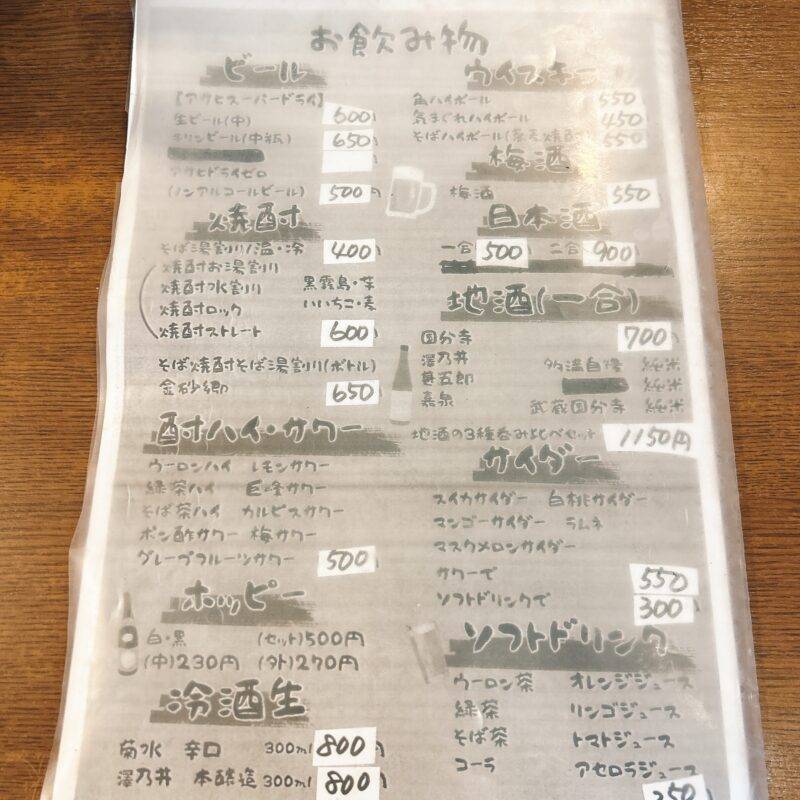 お飲み物
ビール
【アサヒスーパードライ】
生ビール(中) 600
キリンビール(中瓶) 650
アサヒドライゼロ
(ノンアルコールビール) 500円
焼酎
そば湯割り/温・冷 400
焼酎お湯割り
焼酎水割り 黒霧島・芋
焼酎ロック いいちこ・麦
焼酎ストレート 600
そば焼酎そば湯割り(ボトル)
金砂郷 650
酎ハイ・サワー
ウーロンハイ レモンサワー
緑茶ハイ 巨峰サワー
そば茶ハイ カルピスサワー
ポン酢サワー 梅サワー
グレープフルーツサワー 500
ホッピー
白・黒 (セット)500円
(中)230円 (外)270円
冷酒生
菊水 辛口 300ml 800
澤乃井 本醸造 300ml 800
ウイスキー
角ハイボール 550
気まぐれハイボール 450
そばハイボール(蕎麦焼酎) 550
梅酒
梅酒 550
日本酒
一合 500 二合 900
地酒(一合)
国分寺 700
澤乃井 多満自慢 純米
甚五郎 純米
嘉泉 武蔵国分寺 純米
地酒の3種呑み比べセット 1150円
サイダー
スイカサイダー 白桃サイダー
マンゴーサイダー ラムネ
マスクメロンサイダー
サワーで 550
ソフトドリンクで 300
ソフトドリンク
ウーロン茶 オレンジジュース
緑茶 リンゴジュース
そば茶 トマトジュース
コーラ アセロラジュース
250